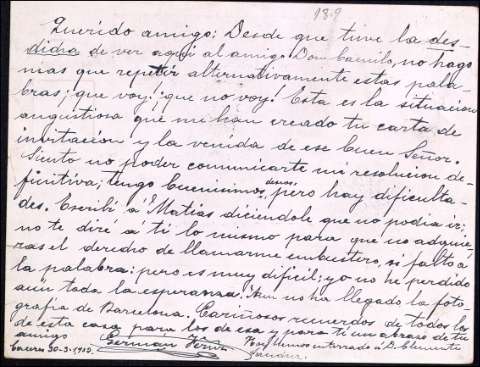 1389
Querido amigo: Desde que tuve la des-
dicha de ver aquí al amigo Don Camilo, no hago
mas que repetir alternativamente estas pala-
bras; ¡que voy! ¡que no voy! Esta es la situacion
angustiosa que me han creado tu carta de
invitación y la venida de ese buen Señor.
Siento no poder comunicarte mi resolucion de-
finitiva; tengo buenisimos deseos, pero hay dificulta-
des. Escribí á Matias diciendole que no podia ir;
no te diré á ti lo mismo para que no adquie-
ras el derecho de llamarme embustero, si falto á
la palabra: pero es muy dificil; yo no he perdido
aún toda la esperanza. Aun no ha llegado la foto-
grafía de Barcelona. Cariñosos recuerdos de todos los
de esta casa para los de esa y para ti un abrazo de tu
amigo German
Hoy hemos enterrado á D. Clemente
Caceres 30-3-1905.